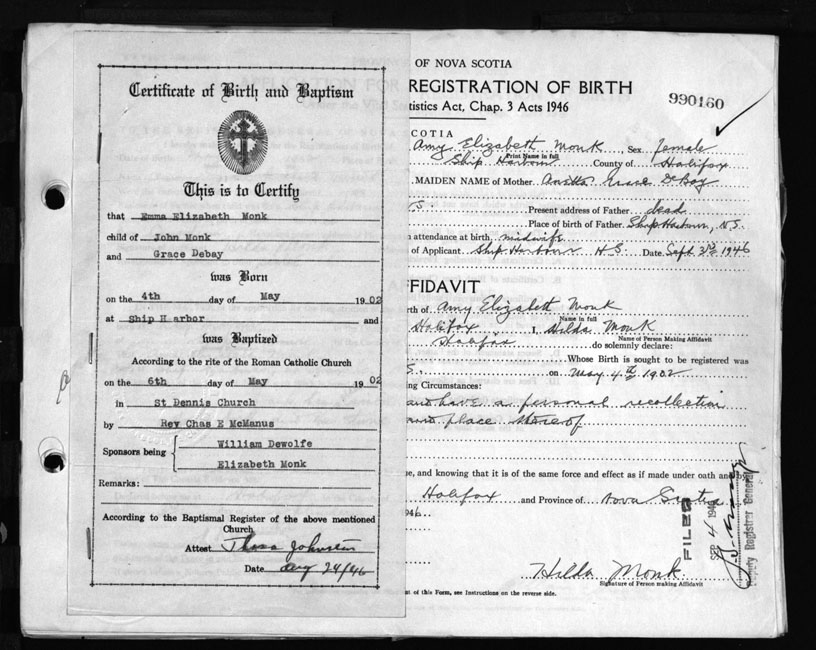 Certificate of Birth and Baptism
This is to Certify
that Emma Elizabeth Monk
child of John Monk
and Grace Debay
was Born
on the 4th day of May 1902
at Ship Harbor and
was Baptized
According to the rite of the Roman Catholic Church
on the 6th day of May 1902
in St Dennis Church
by Rev Chas E McManus
Sponsors being William Dewolfe
Elizabeth Monk
Remarks:
According to the Baptismal Register of the above mentioned
Church
Attest Johnston
Date Aug 24/46
OF NOVA SCOTIA
REGISTRATION OF BIRTH
tistics Act, Chap. 3 Acts 1946
990160
SCOTIA
Amy Elizabeth Monk Sex female
Print Name in full
Ship Harbour County of Halifax
MAIDEN NAME of Mother Grace DeBay
S. Present address of Father dead
Place of birth of Father Ship Harbour, N.S.
attendance at birth midwife
of Applicant Ship Harbour N.S. Date Sept 3rd 1946
FFIDAVIT
rth of Amy Elizabeth Monk
Name in full
Halifax I, Hilda Monk
Name of Person Making Affidavit
Halifax do solemnly declare:
Whose Birth is sought to be registered was
S. on May 4th 1902
ng Circumstances:
and have a personal recollection
and place thereof
se, and knowing that it is of the same force and effect as if made under oath and by
Halifax and Province of Nova Scotia
946
FILED
SEP 4 1946
Deputy Registrar General
Hilda Monk
Signature of Person making Affidavit
nt of this Form, see Instructions on the reverse side.